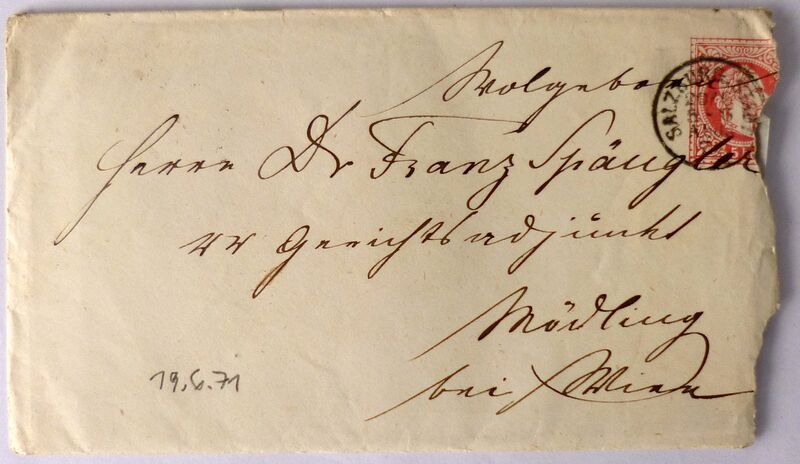 Wolgebor
Herrn Dr Franz Spängler
kk Gerichtsadjunkt
Mödling
bei Wien
19.6.71
SALZBURG
5